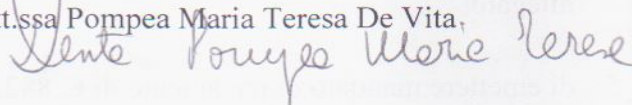 tt.ssa Pompea Maria Teresa De Vita.
Pompea Maria Teresa